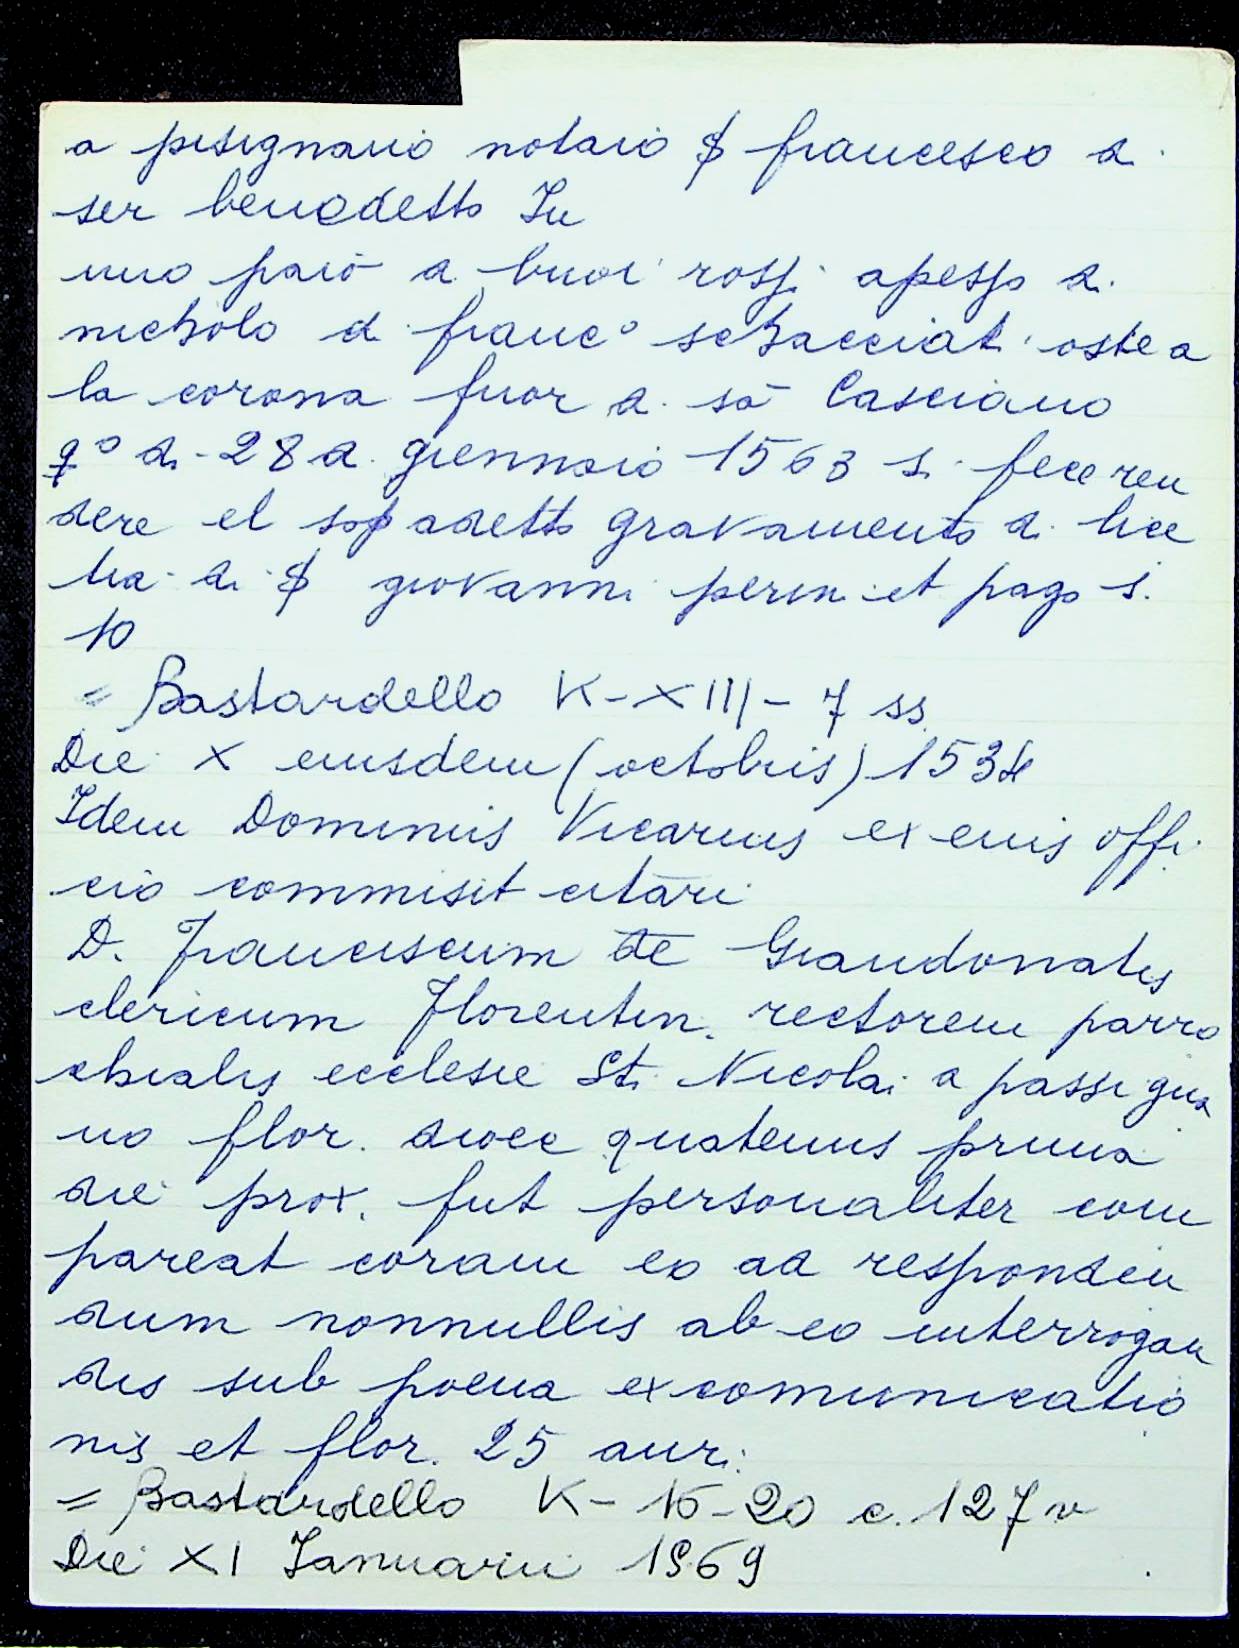 a pisignano notaio $ francesco d.
ser benedetto In
uno paio d. buoi rossi apesso d.
nicholo d. franc° schacciat. oste a
la corona fuor d. sā Casciano
q° di 28 d. giennaio 1563 s. fece ren
dere el sopadetto gravamento d. lice
tia di $ giovanni perin et pago s.
10
= Bastardello K-XIII-7 ss.
Die X eiusdem (octobris) 1534
Idem Dominus Vicarius ex eius offi
cio commisit citari
D. Franciscum de Giandonatis
clericum Florentin. rectorem parro
chialis ecclesie Sti Nicolai a passigna
no flor. dioec quatenus prima
die prox. fut personaliter com
pareat coram eo ad responden
dum nonnullis ab eo interrogan
dis sub poena excomunicatio
nis et flor. 25 aur.
= Bastardello K-16-20 c. 127 v
Die XI Januarii 1569